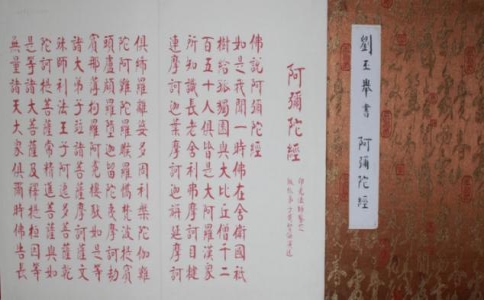 劉王舉書 阿彌陀經
阿彌陀經
佛說阿彌陀經
如是我聞一時佛在舍衛國祇
樹給孤獨園與大比丘僧千二
百五十人俱皆是大阿羅漢眾
所知識長老舍利弗摩訶目犍
連摩訶迦葉摩訶迦旃延摩訶
俱絺羅離婆多周利槃陀伽難
陀阿難陀羅睺羅憍梵波提賓
頭盧頗羅墮迦留陀夷摩訶劫
賓那薄拘羅阿㝹樓馱如是等
諸大弟子並諸菩薩摩訶薩文
殊師利法王子阿逸多菩薩乾
陀訶提菩薩常精進菩薩與如
是等諸大菩薩及釋提桓因等
無量諸天大眾俱爾時佛告長